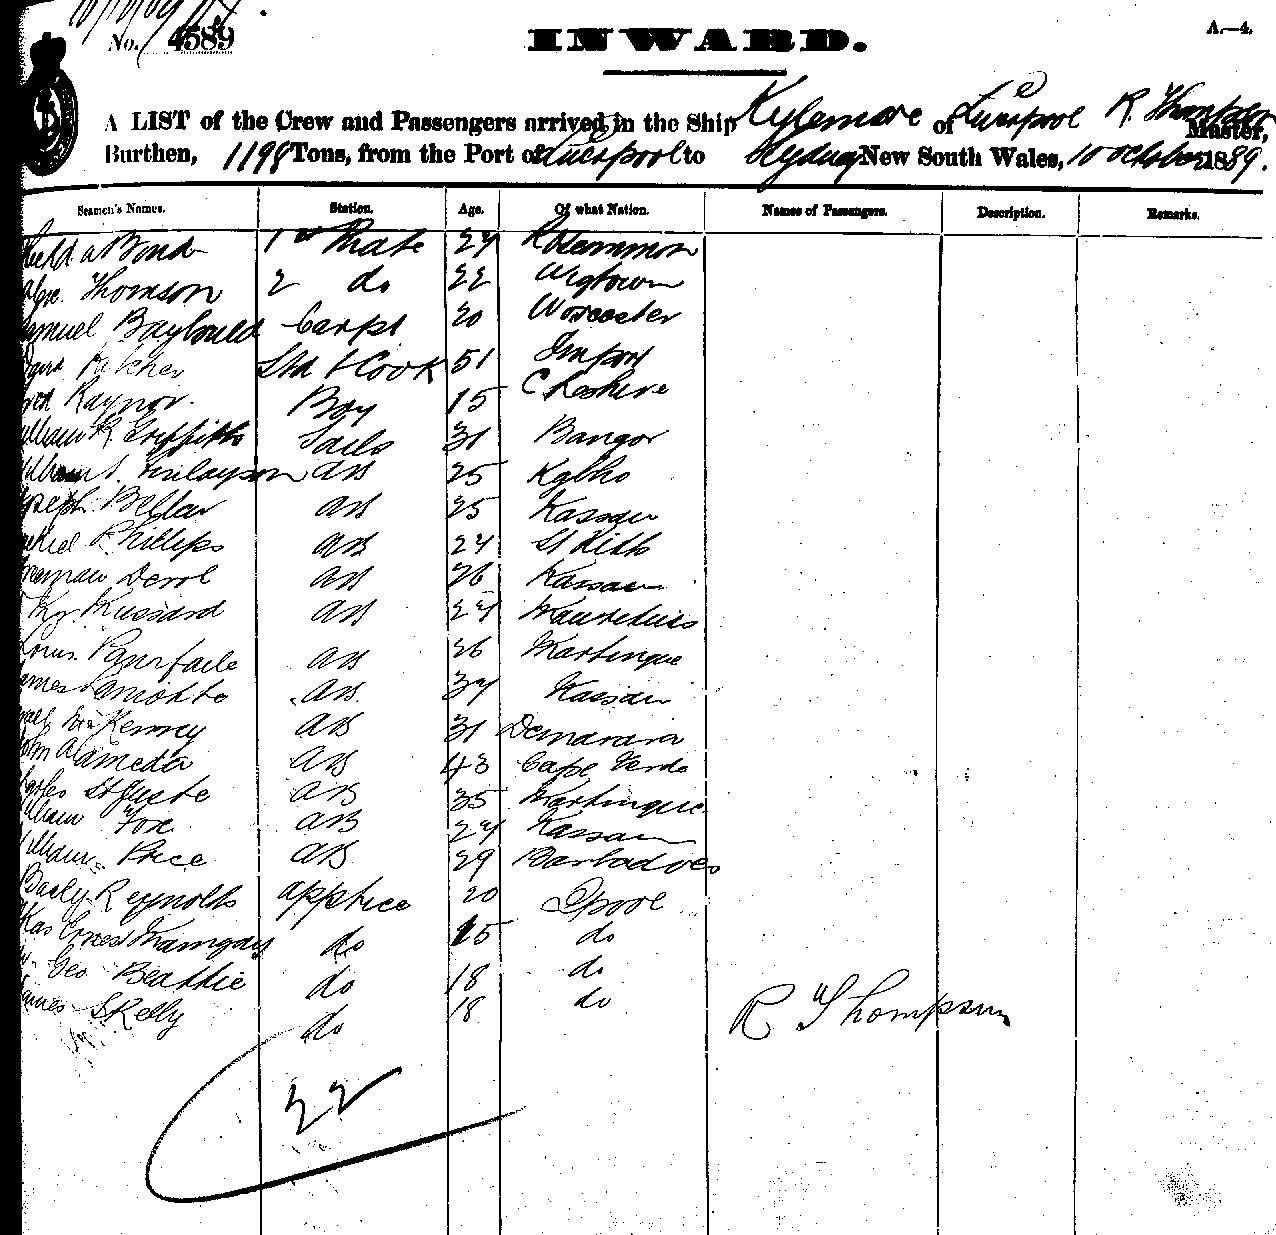 10/10/89
No. 4589
INWARD.
A.—4.
A LIST of the Crew and Passengers arrived in the Ship Kylemore of Liverpool R. Thompson Master,
Burthen, 1198 Tons, from the Port of Liverpool to Sydney New South Wales, 10 October 1889.
Seamen's Names. Station. Age. Of what Nation. Names of Passengers. Description. Remarks.
a Bond 1st Mate 24 Roscommon
Thomson 2 do 22 Wigtown
Samuel Baybould Carpt 20 Worcester
Pitcher Std & Cook 51
Raynor 15 Cheshire
Boy
William R Griffiths Sails 31 Bangor
Finlayson AB 25
Joseph Bellar AB 25 Nassau
Phillips AB 24 St Kitts
Freeman AB 26 Nassau
Kussard AB 24 Mauritius
Louis AB 26 Martinque
James AB 34 Nassau
McKenney AB 31 Demarara
John Alameda AB 43 Cape Verde
Charles St Juste AB 35 Martinque
William Fox AB 24 Nassau
William Price AB 29 Barbadoes
Reynolds apptice 20 Lpool
Ernest do 15 do
Geo Beattie do 18 do
James Skelly do 18 do
R Thompson
22